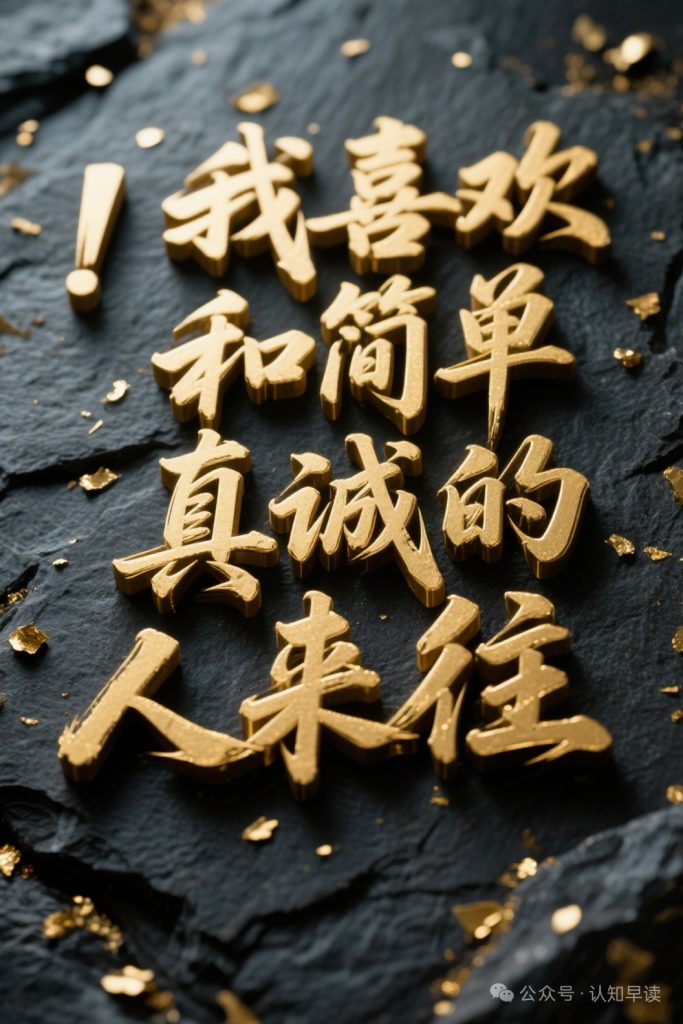 ！我喜欢
和简单
真诚的
人来往
公众号·认知早读